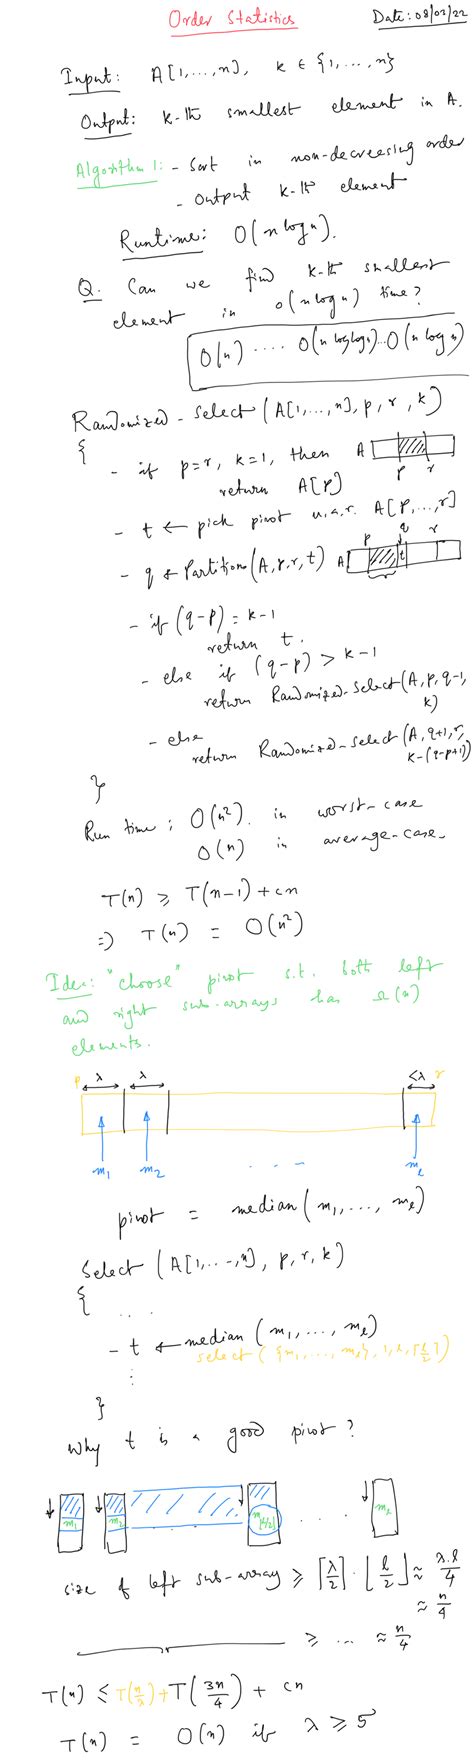 Order Statistics
Date: 08/02/22
Input: A[1,...,n], k ∈ {1,...,n}
Output: k-th smallest element in A.
Algorithm 1: - Sort in non-decreasing order
- Output k-th element
Runtime: O(n log n).
Q. Can we find k-th smallest
element in o(n log n) time?
O(n) .... O(n log log n)...O(n log n)
Randomized-Select(A[1,...,n], p, r, k)
{
- if p=r, k=1, then
return A[p]
A
p r
- t ← pick pivot u.a.r. A[p,...,r]
- q ← Partition(A, p, r, t)
p q r
A t
- if (q-p) = k-1
return t.
- else if (q-p) > k-1
return Randomized-Select(A, p, q-1,
k)
- else
return Randomized-Select(A, q+1, r,
k-(q-p+1))
}
Run time: O(n²) in worst-case
O(n) in average-case.
T(n) ≥ T(n-1) + cn
⇒ T(n) = O(n²)
Idea: "choose" pivot s.t. both left
and right sub-arrays has Ω(n)
elements.
p λ λ <λ r
m₁ m₂ ... mₗ
pivot = median(m₁,..., mₗ)
Select (A[1,...,n], p, r, k)
{
....
- t ← median (m₁,..., mₗ)
select({m₁,..., mₗ}, 1, l, ⌈l/2⌉)
⋮
}
Why t is a good pivot?
m₁ m₂ m⌈l/2⌉ ... mₗ
size of left sub-array ≥ ⌈λ/2⌉·⌊l/2⌋ ≈ λ.l/4
≈ n/4
≥ ... ≈ n/4
T(n) ≤ T(n/λ) + T(3n/4) + cn
T(n) = O(n) if λ ≥ 5